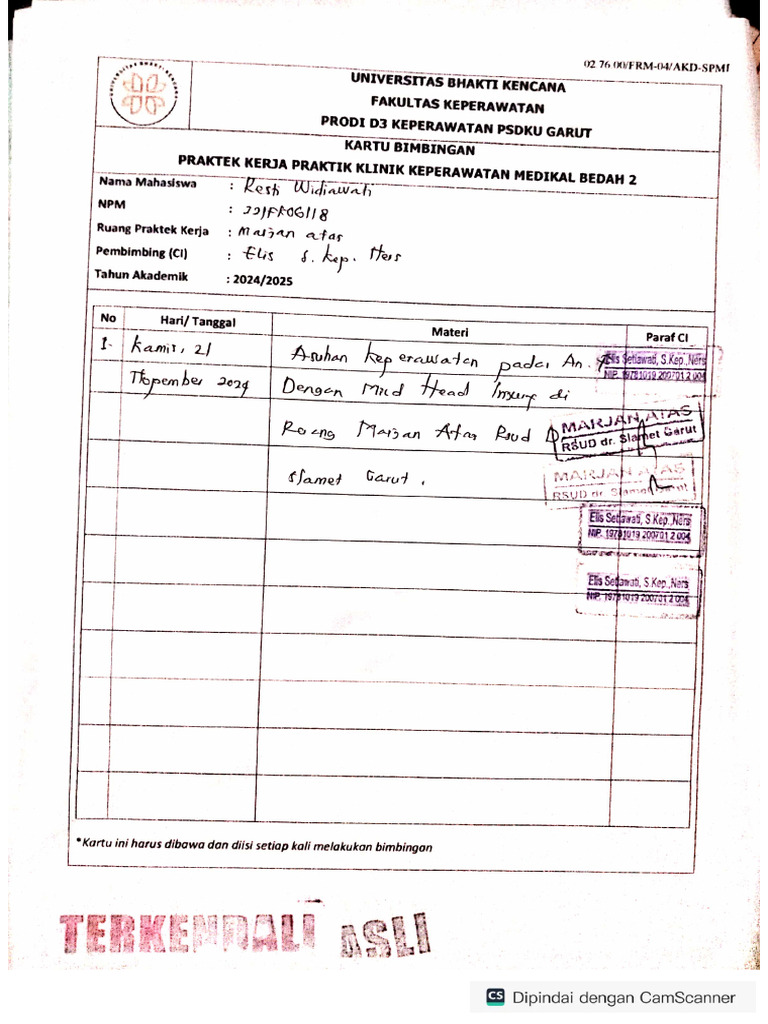 02 76 00/FRM-04/AKD-SPMI
UNIVERSITAS BHAKTI KENCANA
FAKULTAS KEPERAWATAN
PRODI D3 KEPERAWATAN PSDKU GARUT
KARTU BIMBINGAN
PRAKTEK KERJA PRAKTIK KLINIK KEPERAWATAN MEDIKAL BEDAH 2
Nama Mahasiswa : Resti Widiawati
NPM : 221FK06118
Ruang Praktek Kerja : Marjan atas
Pembimbing (CI) : Elis S. Kep. Ners
Tahun Akademik : 2024/2025
No Hari/ Tanggal Materi Paraf CI
1. Kamis, 21 Asuhan Keperawatan pada An.
2024 Dengan Mild Head Injury di
Ruang Marjan Atas Rsud D
Slamet Garut.
Elis Setiawati, S.Kep.,Ners
NIP. 19781019 200701 2 004
MARJAN ATAS
RSUD dr. Slamet Garut
MARJAN ATAS
RSUD dr. Slamet
Elis Setiawati, S.Kep.,Ners
NIP. 19781019 200701 2 004
Elis Setiawati, S.Kep.,Ners
NIP. 19781019 200701 2 004
*Kartu ini harus dibawa dan diisi setiap kali melakukan bimbingan
TERKENDALI ASLI
CS Dipindai dengan CamScanner